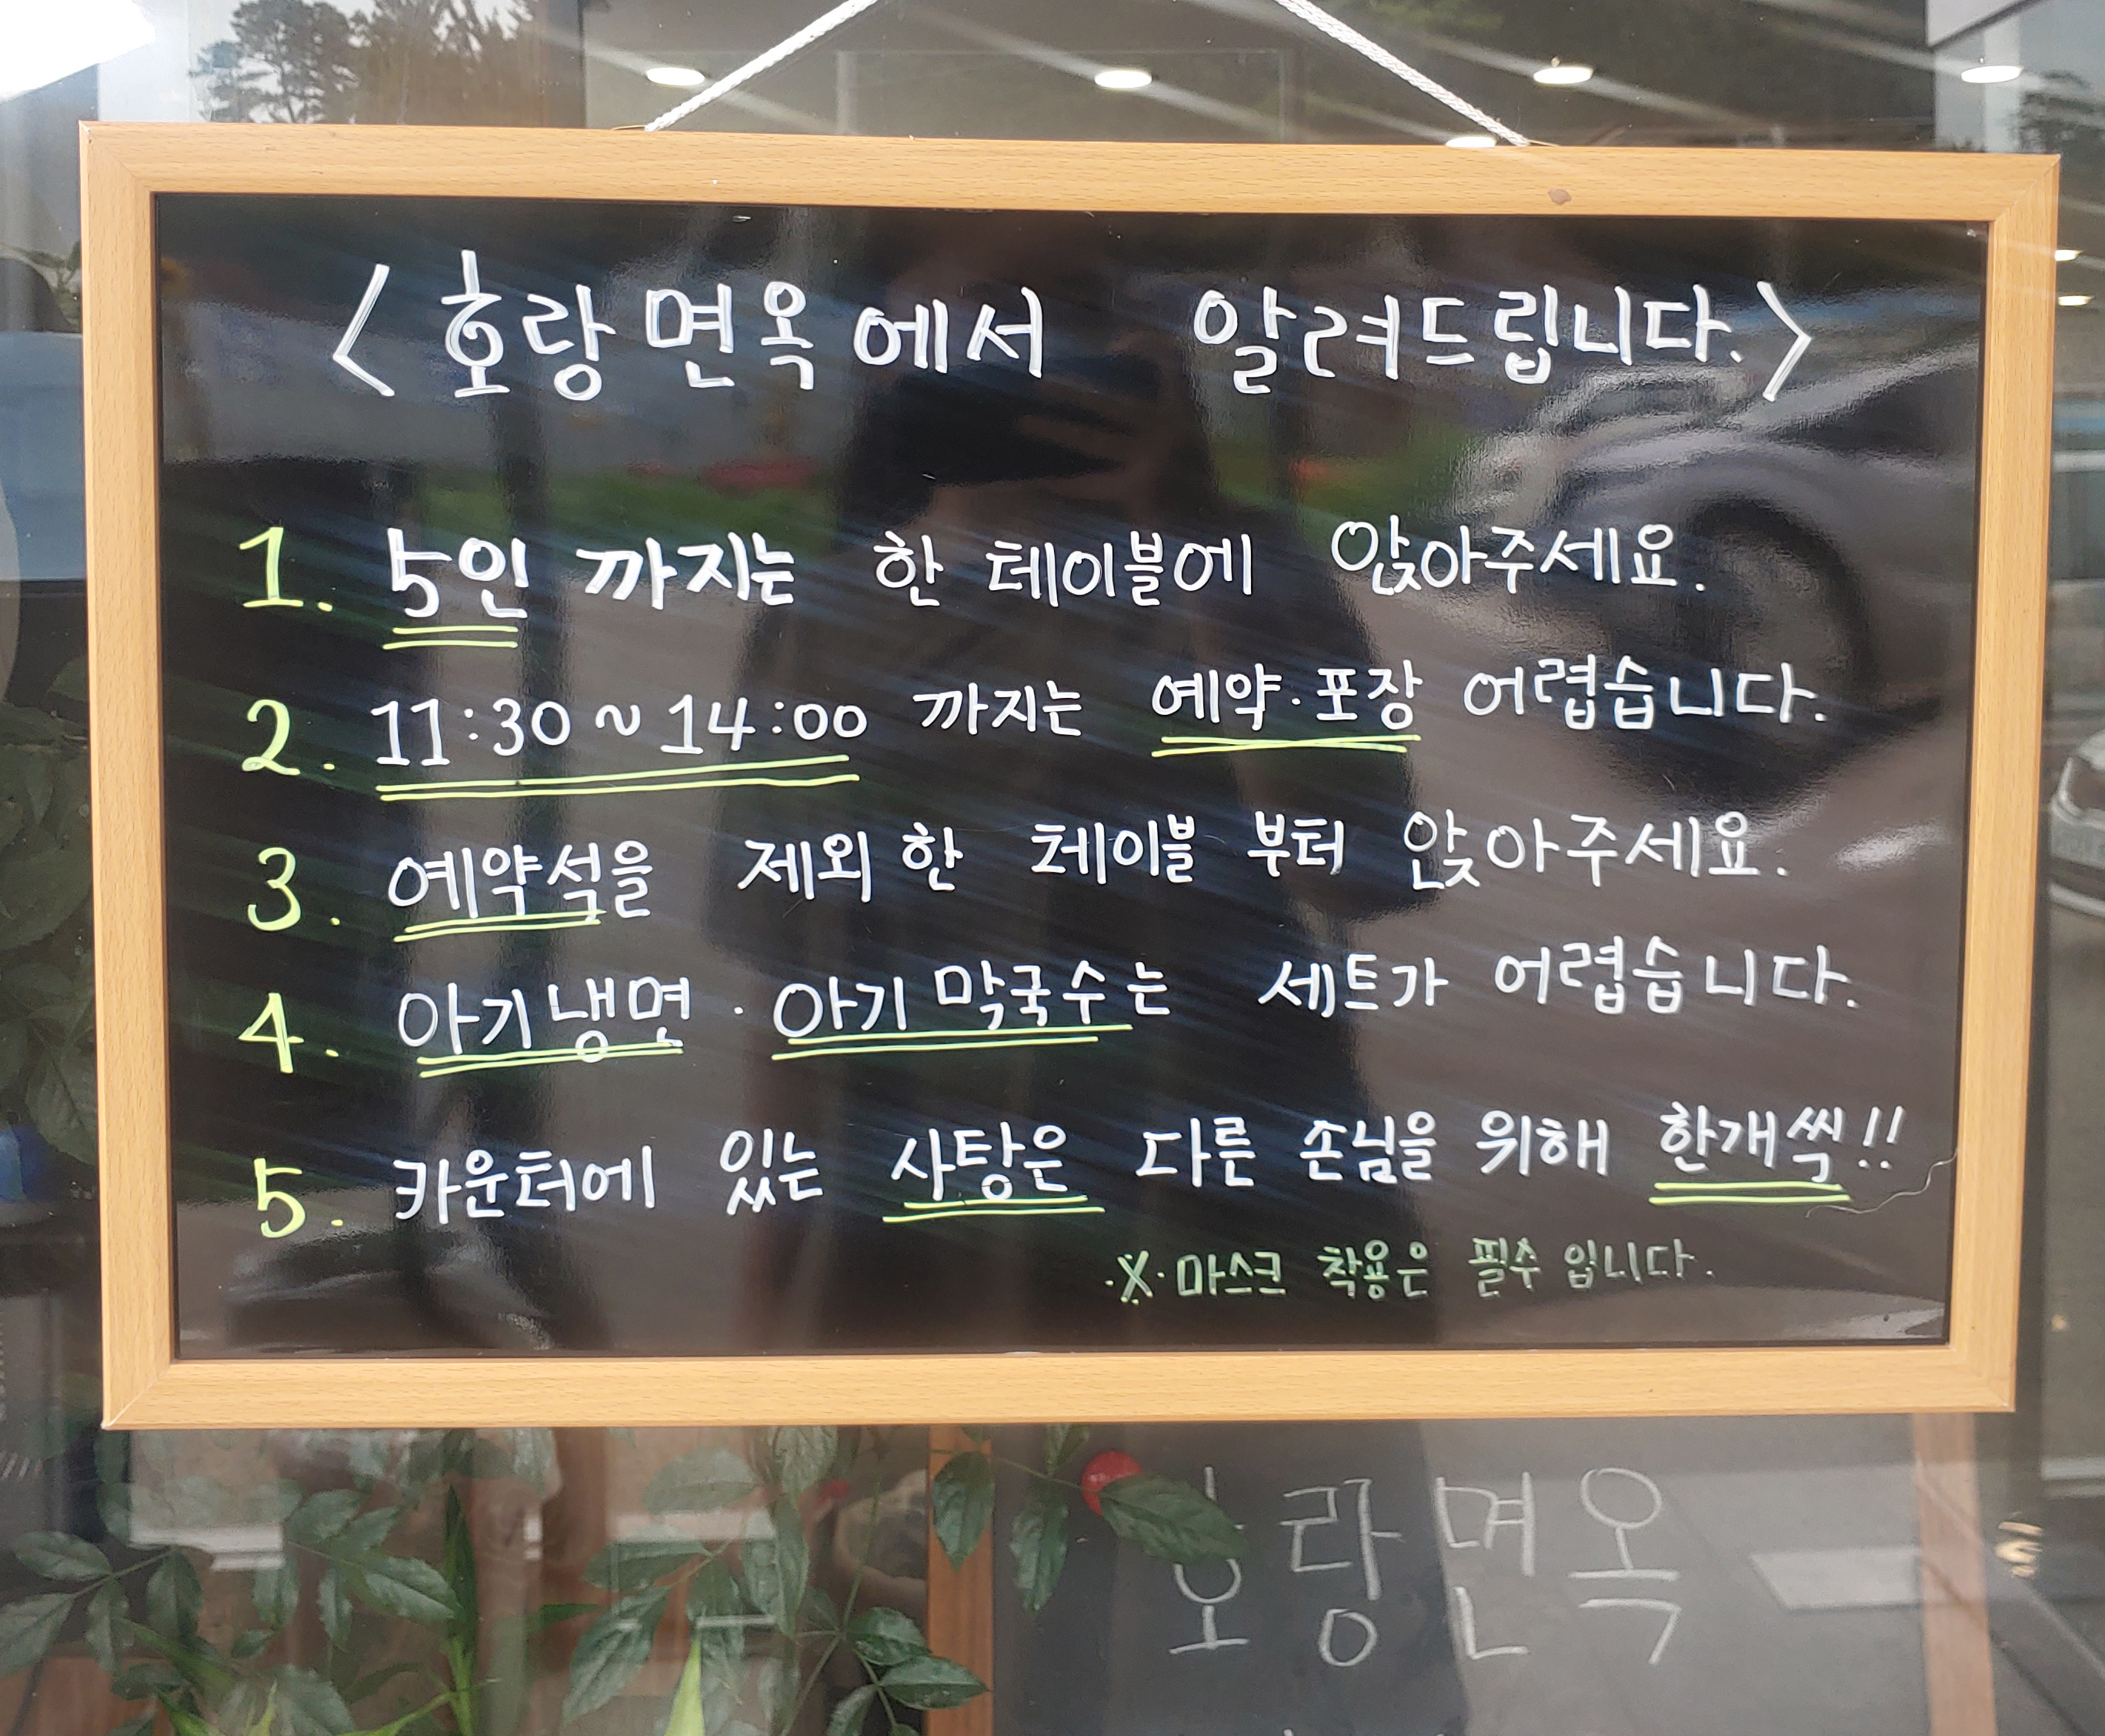 <호랑면옥에서 알려드립니다.>
1. 5인 까지는 한 테이블에 앉아주세요.
2. 11:30~14:00 까지는 예약·포장 어렵습니다.
3. 예약석을 제외한 테이블 부터 앉아주세요.
4. 아기냉면·아기 막국수는 세트가 어렵습니다.
5. 카운터에 있는 사탕은 다른 손님을 위해 한개씩!!
※마스크 착용은 필수 입니다.
호랑면옥